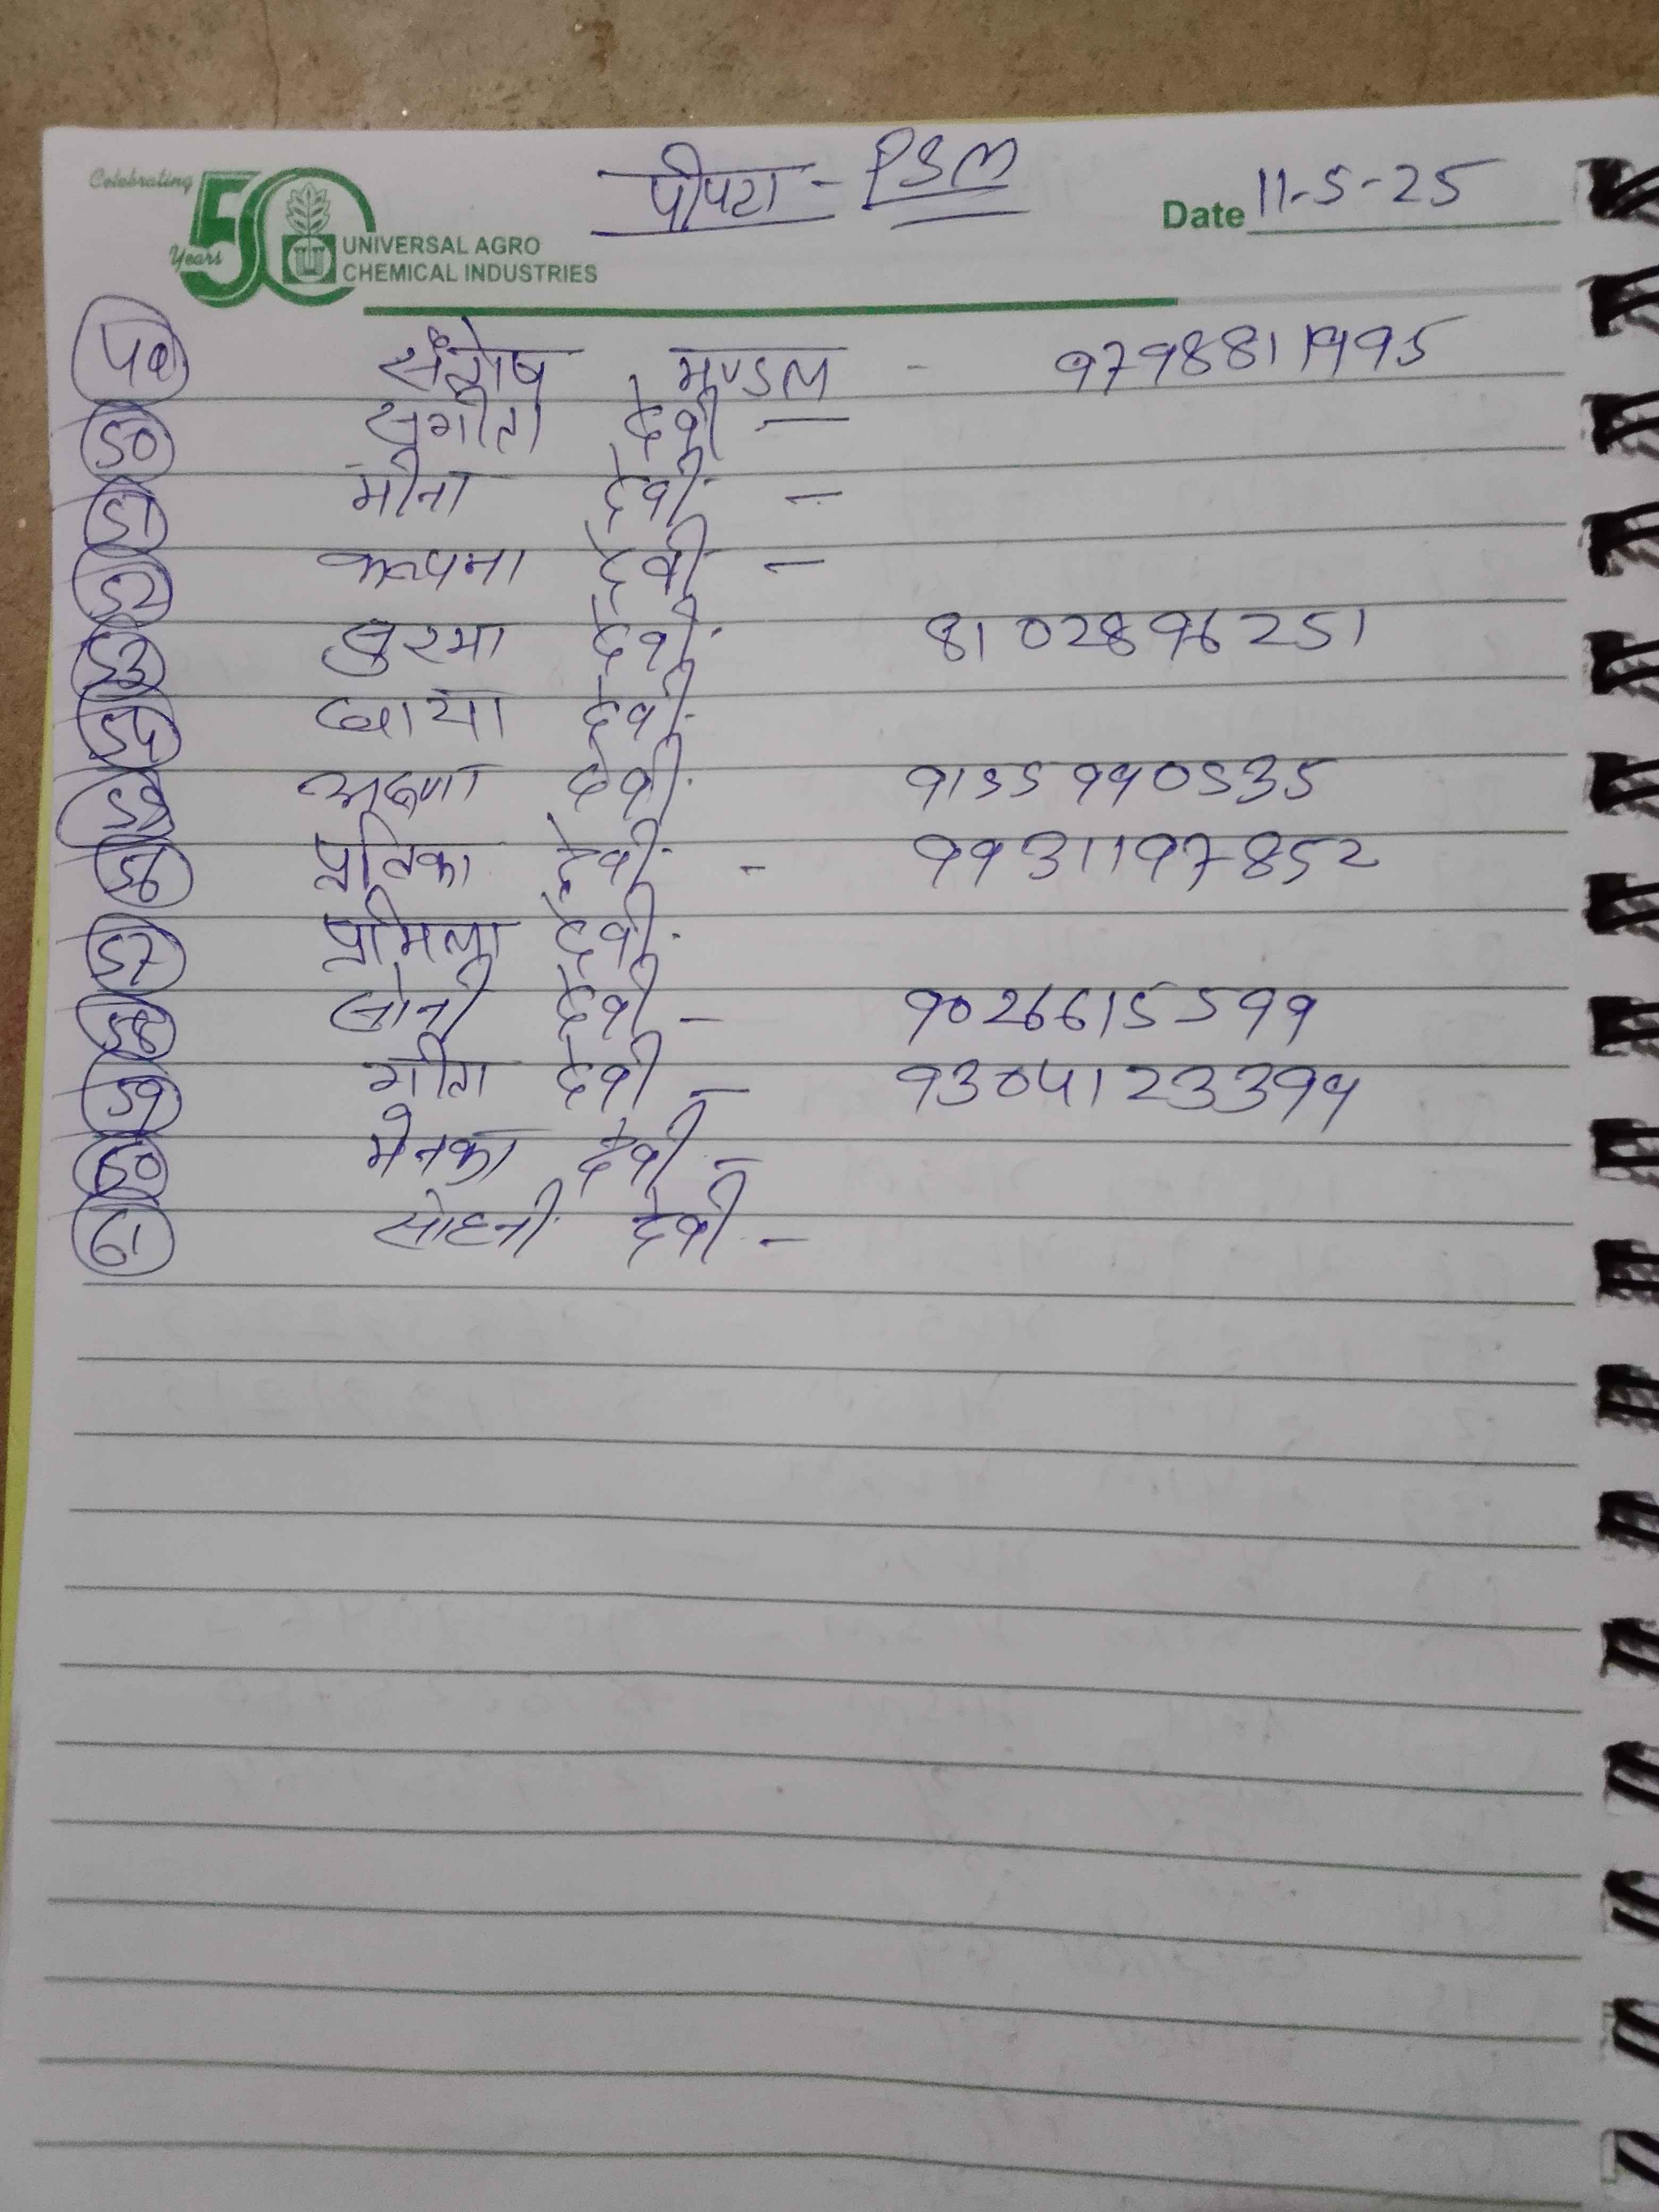 Celebrating 50 Years
UNIVERSAL AGRO
CHEMICAL INDUSTRIES
पीपरा - PSM
Date 11-5-25
49 संतोष मण्डल - 9798811995
50 सुगीता देवी —
51 मीना देवी —
52 कल्पना देवी —
53 सुरमा देवी 8102896251
54 छाया देवी
55 देवी 9155990535
56 प्रतिका देवी - 9931197852
57 प्रमिला देवी
58 सोनी देवी — 9026615599
59 गीता देवी — 9304123399
60 मेनका देवी —
61 सोहनी देवी —